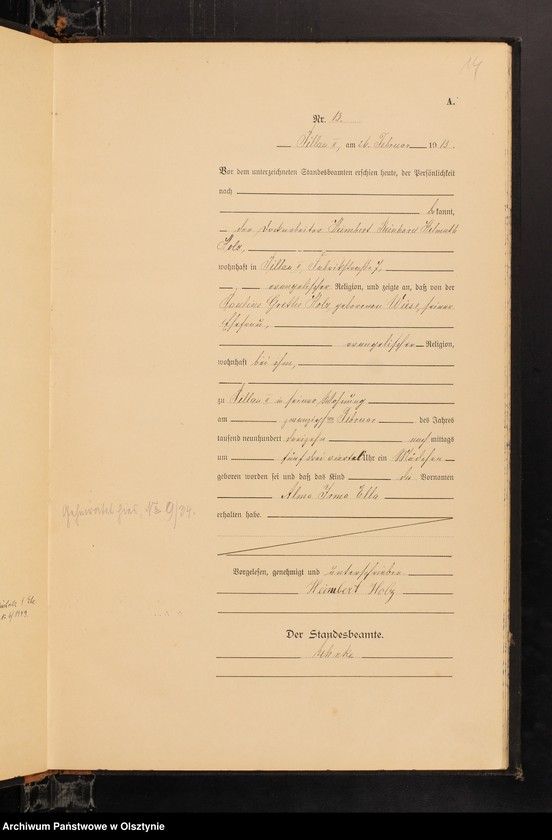 14
A.
Nr. 13.
Pillau I, am 26. Februar 1913.
Vor dem unterzeichneten Standesbeamten erschien heute, der Persönlichkeit
nach
bekannt,
der Dockarbeiter Heimbert Reinhard Helmuth
Holz,
wohnhaft in Pillau I, Fabrikstraße 7,
evangelischer Religion, und zeigte an, daß von der
Pauline Holz, geborenen Wiese, seiner
Ehefrau,
evangelischer Religion,
wohnhaft bei ihm,
zu Pillau I in seiner Wohnung
am zwanzigsten Februar des Jahres
tausend neunhundert dreizehn nach mittags
um fünf drei viertel Uhr ein Mädchen
geboren worden sei und daß das Kind die Vornamen
Alma Irma Ella
erhalten habe.
Geheiratet hier, Nr. 9/34.
Vorgelesen, genehmigt und unterschrieben
Heimbert Holz
Der Standesbeamte.
Archiwum Państwowe w Olsztynie